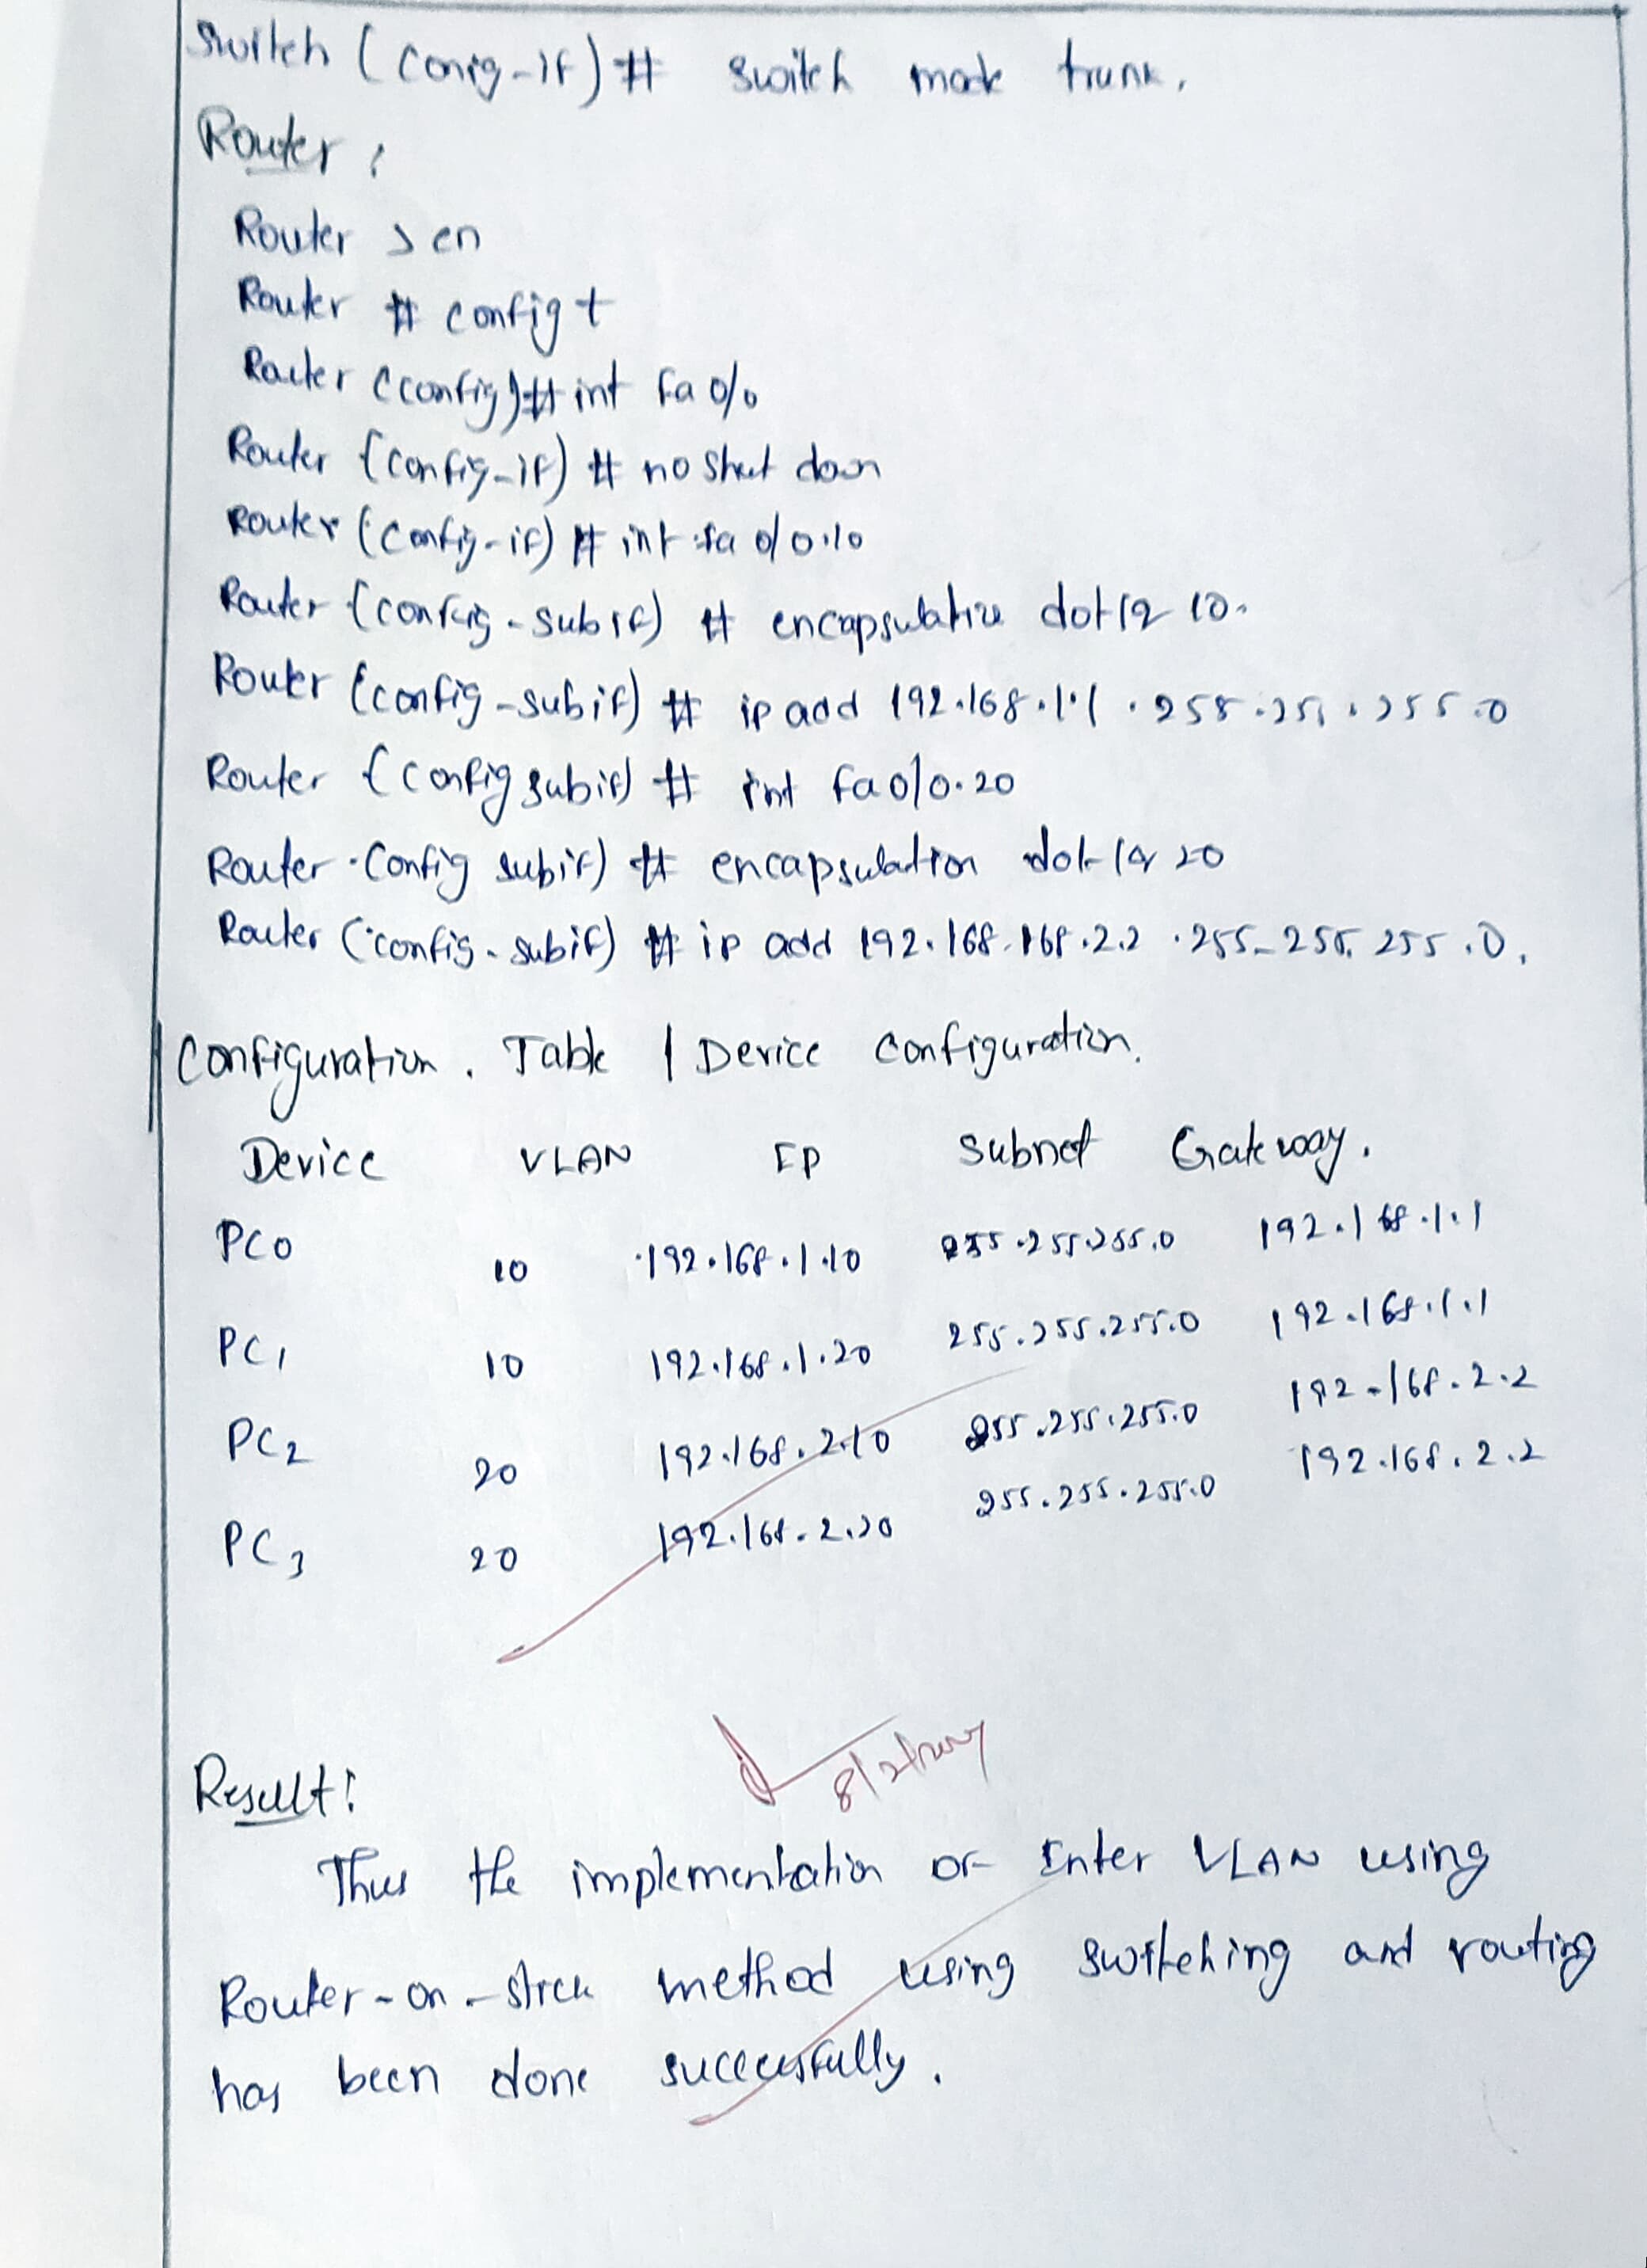 Switch (conig-if) # switch mode trunk.
Router:
Router > en
Router # config t
Router (config) # int fa 0/0
Router (config-if) # no shut down
Router (config-if) # int fa 0/0.10
Router (config-subif) # encapsulation dot1q 10.
Router (config-subif) # ip add 192.168.1.1 . 255.255.255.0
Router (config subif) # int fa0/0.20
Router .Config subif) # encapsulation dot1q 20
Router (config-subif) # ip add 192.168.168.2.2 .255-255.255.0.
Configuration. Table | Device configuration.
Device VLAN IP Subnet Gateway.
PC0 10 192.168.1.10 255.255.255.0 192.168.1.1
PC1 10 192.168.1.20 255.255.255.0 192.168.1.1
PC2 20 192.168.2.10 255.255.255.0 192-168.2.2
PC3 20 192.168.2.20 255.255.255.0 192.168.2.2
8/2/
Result:
Thus the implementation of Inter VLAN using
Router-on-stick method using switching and routing
has been done successfully.